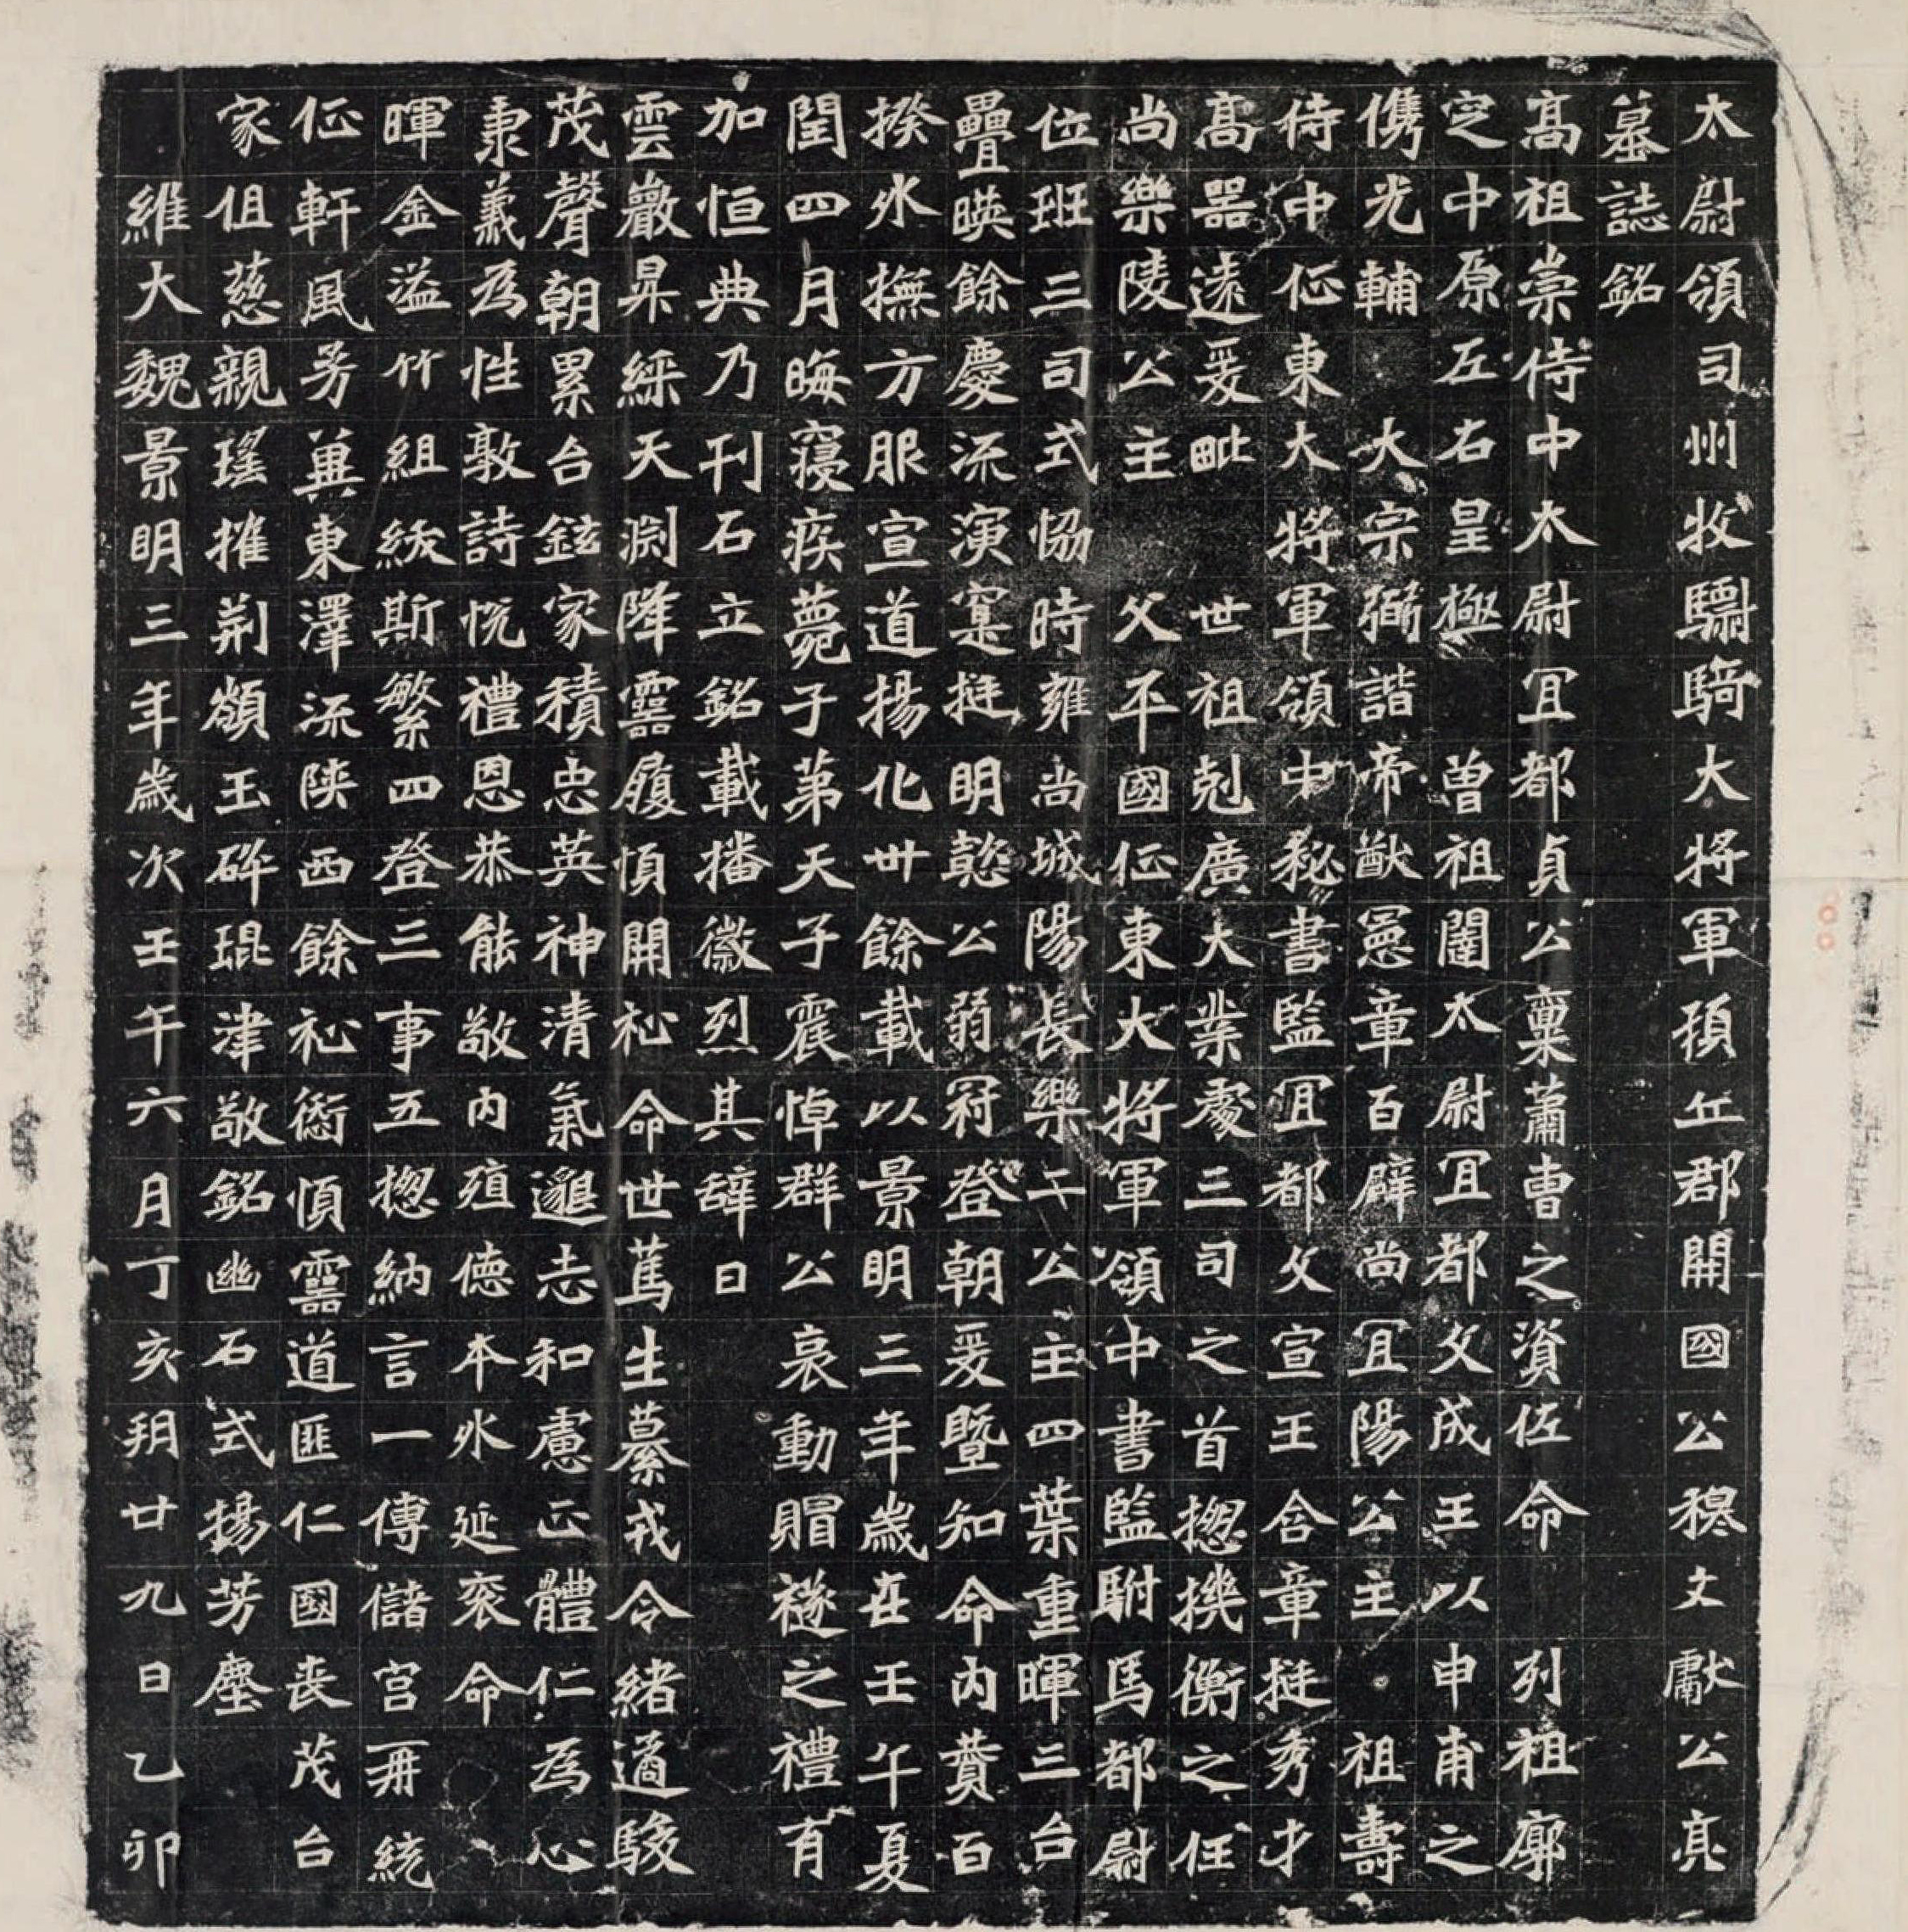 太尉領司州牧驃騎大將軍頓丘郡開國公穆文獻公亮
墓誌銘
高祖崇侍中太尉宜都貞公稟蕭曹之資佐命　列祖廓
定中原左右皇極　曾祖闥太尉宜都文成王以申甫之
儁光輔　大宗弼諧帝猷憲章百辟尚宜陽公主　祖壽
侍中征東大將軍領中秘書監宜都文宣王含章挺秀才
高器遠爰毗　世祖剋廣大業處三司之首揔機衡之任
尚樂陵公主　父平國征東大將軍領中書監駙馬都尉
位班三司式協時雍尚城陽長樂二公主四葉重暉三台
疊暎餘慶流演寔挺明懿公弱冠登朝爰暨知命內贊百
揆外撫方服宣道揚化卅餘載以景明三年歲在壬午夏
閏四月晦寢疾薨于第天子震悼群公哀動賵襚之禮有
加恒典乃刊石立銘載播徽烈其辭曰
雲巖昇綵天淵降靈履順開祉命世篤生綦戎令緒遹駿
茂聲朝累台鉉家積忠英神清氣邈志和慮正體仁為心
秉義為性敦詩悅禮恩恭能敬內殖德本外延袞命
暉金溢竹組紱斯繁四登三事五揔納言一傅儲宮再統
征軒風芳冀東澤流陝西餘祉衍順靈道匪仁國喪茂台
家伹慈親瑤摧荊頞玉碎琨津敬銘幽石式揚芳塵
維大魏景明三年歲次壬午六月丁亥朔廿九日乙卯